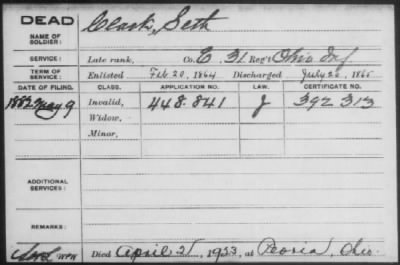 DEAD
NAME OF SOLDIER: Clark, Seth
SERVICE: Late rank, Co. E, 31 Reg't Ohio Inf
TERM OF SERVICE: Enlisted Feb 20, 1864 Discharged July 20, 1865
DATE OF FILING. CLASS. APPLICATION NO. LAW. CERTIFICATE NO.
1882 May 9 Invalid, 448.841 J 392 313
Widow,
Minor,
ADDITIONAL SERVICES:
REMARKS:
Died April 21, 1923, at Peoria, Ohio